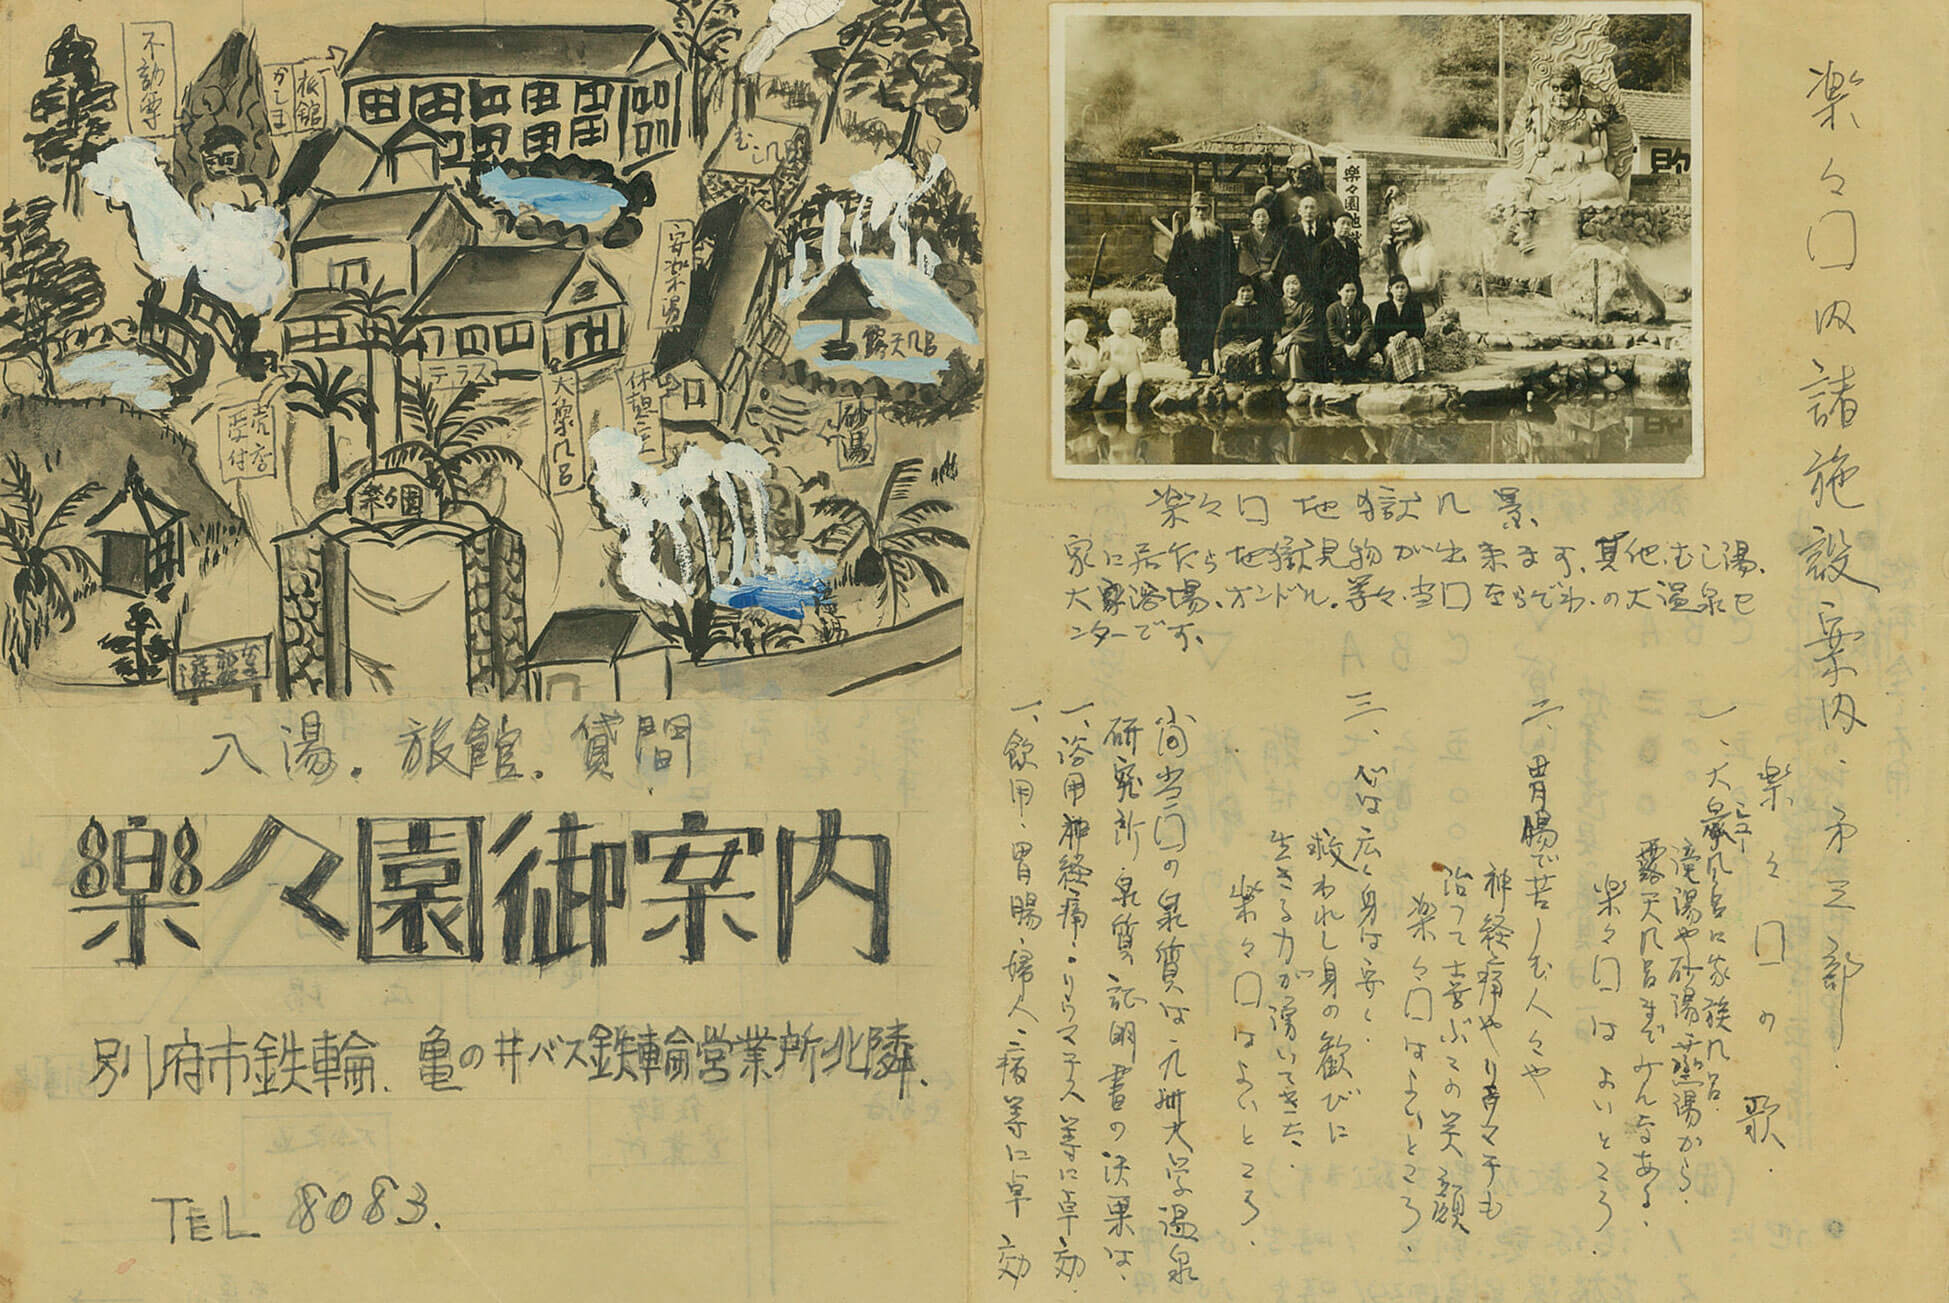 楽々囗内諸施設案内.第三部
楽々園地獄
楽々囗地獄風景
家に居たら地獄見物が出来ます.其他.むし湯、
大衆浴場、オンドル.等々.当囗ならでわ.の大温泉セ
ンターです.
楽々囗の歌.
一、大衆風呂に家族風呂.
滝湯や砂湯蒸湯から.
露天風呂までみんなある.
楽々囗はよいところ
二、胃腸で苦しむ人々や
神経痛やリョウマチも
治って喜ぶその笑顔
楽々囗はよいところ.
三、心は広く身は安く.
救われし身の歓びに
生きる力が湧いてきた.
楽々囗はよいところ.
尚当囗の泉質は.九州大学温泉
研究所.泉質証明書の決果は、
一、浴用神経痛.リウマチス等に卓効
一、飲用、胃腸、婦人二疾等に卓効
不動尊
旅館
かしま
むし風呂
安楽木湯
露天風呂
テラス
大衆風呂
休憩
砂湯
売店
受付
楽々園
入湯.旅館.貸間
楽々園御案内
別府市鉄輪.亀の井バス鉄輪営業所北隣.
TEL 8083.